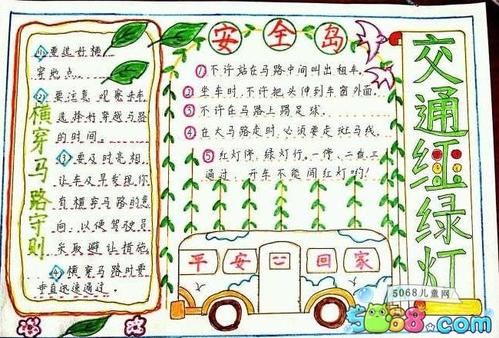 横穿马路守则
①要选好横
穿地点。
②要注意观察来车
选择好穿越马路
的时间。
③要及时亮相,
让车及早发现你
有横穿马路的意
向,以便驾驶员
采取避让措施
④横穿马路时要
垂直迅速通过。
安全岛
①不许站在马路中间叫出租车。
②坐车时,不许把头伸到车窗外面。
③不许在马路上踢足球。
④在大马路走时,必须要走班马线。
⑤红灯停,绿灯行。一停、二看、三
通过,开车不能闯红灯哟!
平安回家
交通红绿灯
5068儿童网
5068.com